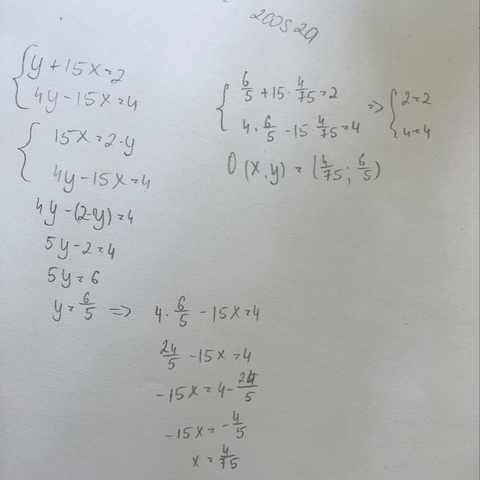 { y + 15x = 2
4y - 15x = 4
{ 15x = 2 - y
4y - 15x = 4
4y - (2 - y) = 4
5y - 2 = 4
5y = 6
y = 6/5 => 4 · 6/5 - 15x = 4
24/5 - 15x = 4
-15x = 4 - 24/5
-15x = -4/5
x = 4/75
{ 6/5 + 15 · 4/75 = 2 => { 2 = 2
4 · 6/5 - 15 · 4/75 = 4 4 = 4
O (x, y) = (4/75; 6/5)